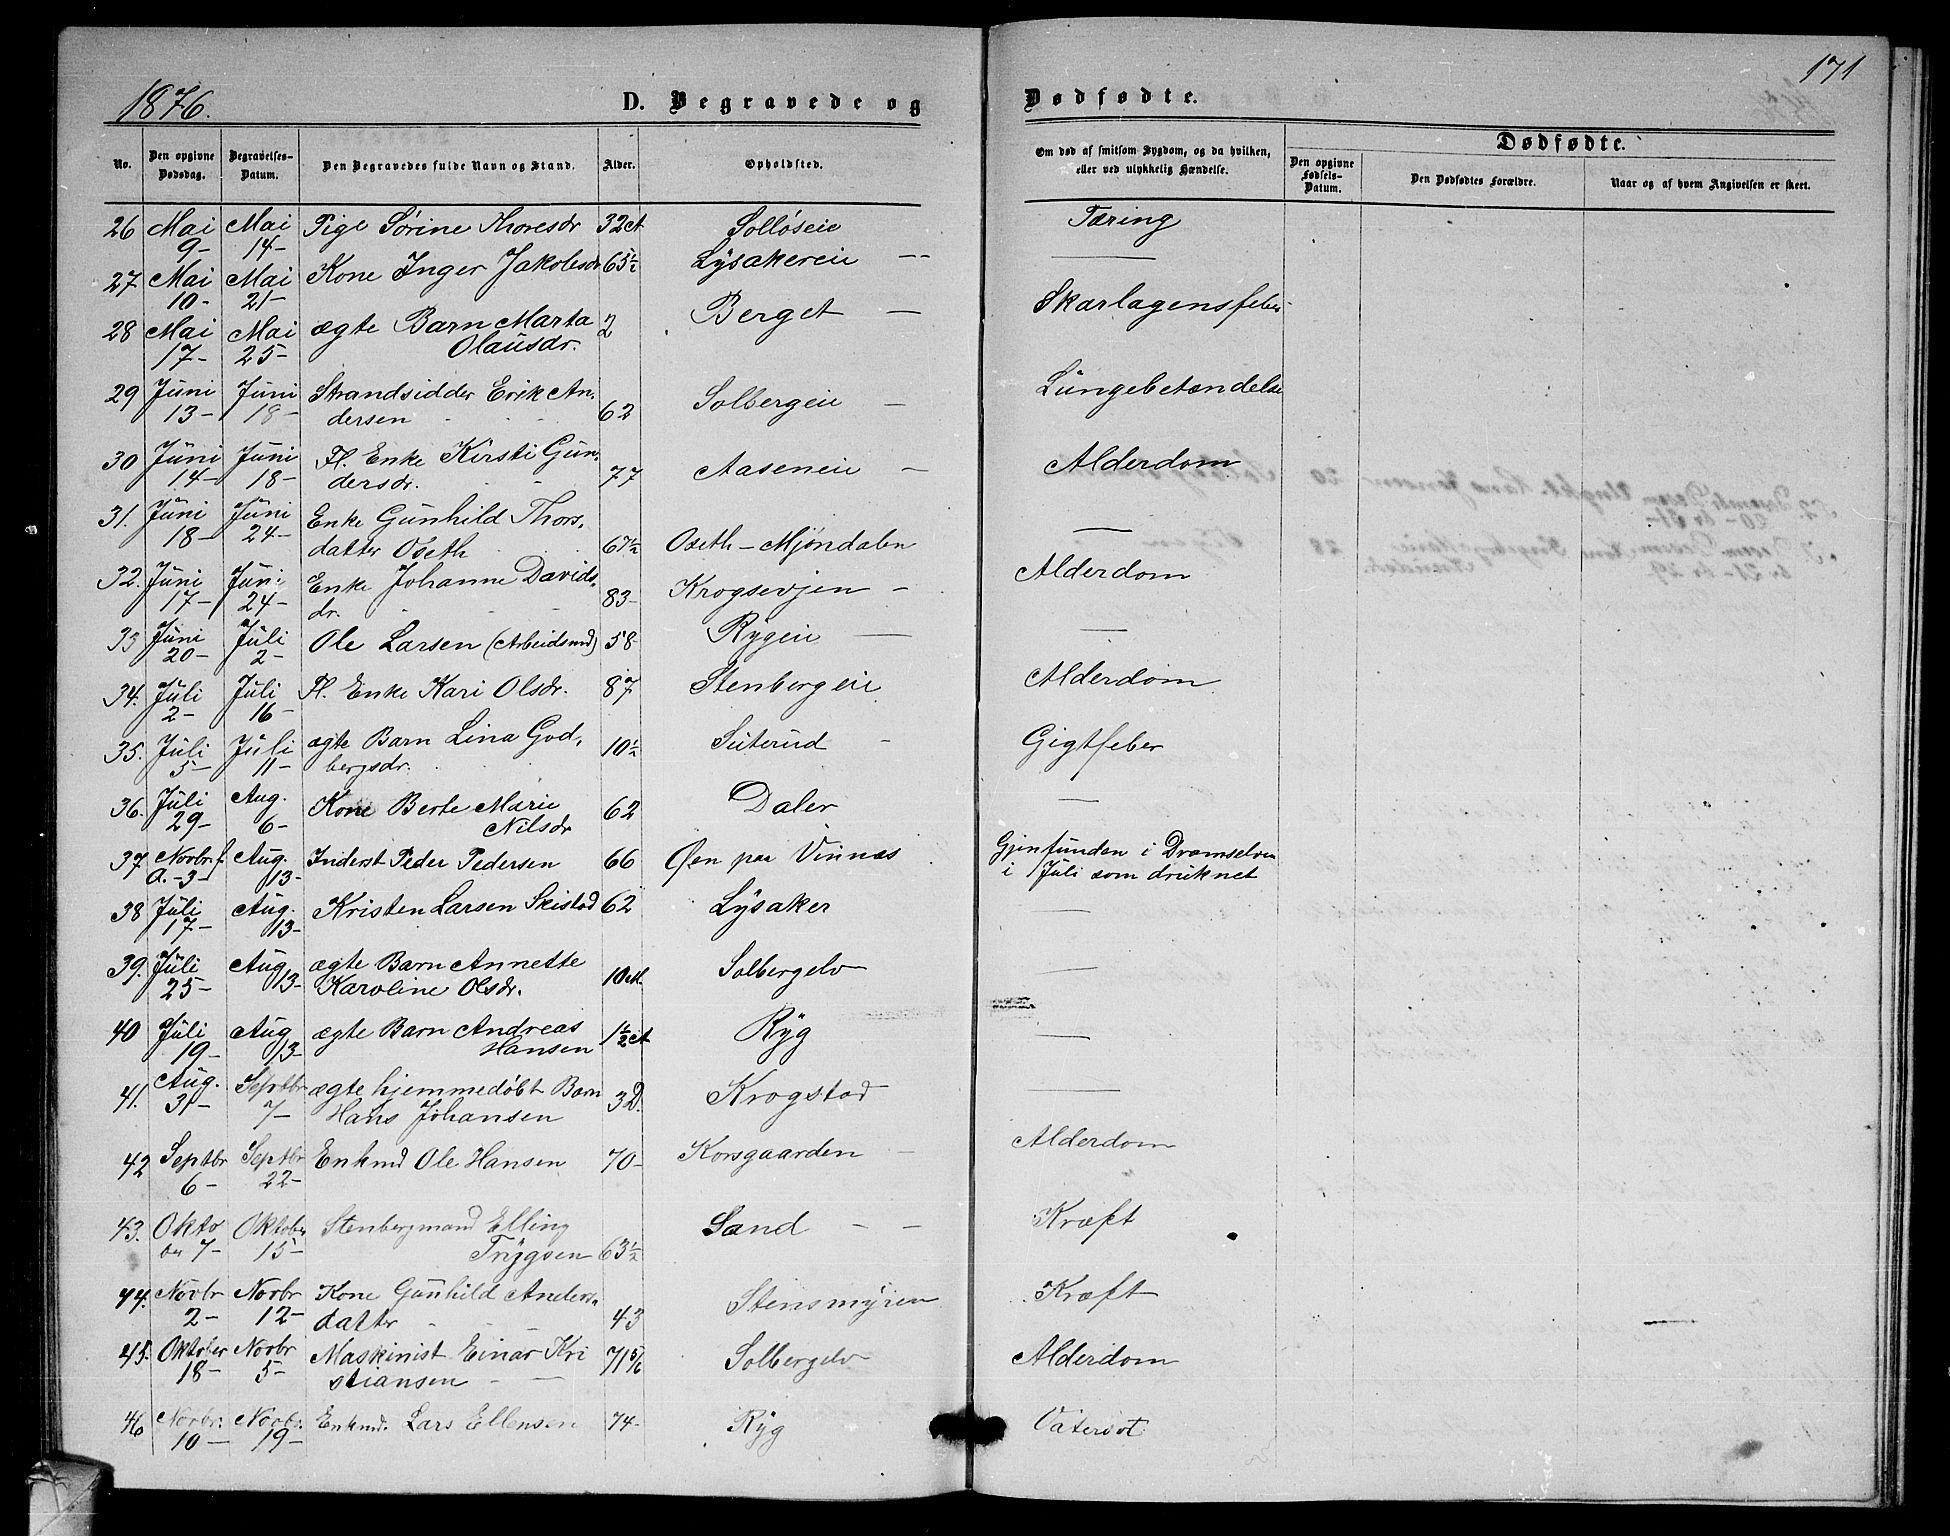 1876.
D. Begravede og
Dødfødte.
171
No.
Den opgivne Dødsdag.
Begravelses-Datum.
Den Begravedes fulde Navn og Stand.
Alder.
Opholdsted.
Om død af smitsom Sygdom, og da hvilken, eller ved ulykkelig Hændelse.
Dødfødte.
Den opgivne Fødsels-Datum.
Den Dødfødtes Forældre.
Naar og af hvem Angivelsen er skeet.
26 Mai 9- Mai 14- Pige Sörine Thoresdr 32 Solløseie Tæring
27 Mai 10- Mai 21- Kone Inger Jakobsdr 65½ Lysakereie —
28 Mai 17- Mai 25- ægte Barn Marta 2 Berget — Skarlagensfeber
Olausdr.
29 Juni 13- Juni 18- Strandsidder Erik An- 62 Solbergeie — Lungebetændelse
dersen
30 Juni 14- Juni 18- Fl. Enke Kirsti Gun- 77 Aaseneie — Alderdom
dersdr.
31. Juni 18- Juni 24- Enke Gunhild Thors- 67½ Oseth - Mjøndalen —
datter Oseth
32. Juni 17- Juni 24- Enke Johanne Davids- 83- Krogsevjen - Alderdom
dr.
33 Juni 20- Juli 2- Ole Larsen (Arbeidsmd) 58- Rygeie — —
34. Juli 2- Juli 16- Fl. Enke Kari Olsdr. 87 Stenbergeie Alderdom
35. Juli 5- Juli 11- ægte Barn Lina God- 10½ Suterud - Gigtfeber
bergsdr.
36. Juli 29- Aug. 6- Kone Berte Marie 62 Daler —
Nilsdr
37. Novbr. f. A. -3- Aug. 13- Inderst Peder Pedersen 66 Øen paa Vinnæs Gjenfunden i Dramselven
i Juli som druknet
38 Juli 17- Aug. 13- Kristen Larsen Skistad 62 Lysaker —
39. Juli 25- Aug 13- ægte Barn Annette 10 Solbergelv —
Karoline Olsdr.
40 Juli 19- Aug 13- ægte Barn Andreas 1½ Ryg —
Hansen
41. Aug. 31- Septbr 7- ægte hjemmedøbt Barn 3D. Krogstad —
Hans Johansen
42 Septbr 6- Septbr 22- Enkmd Ole Hansen 70- Korsgaarden - Alderdom
43. Oktober 7- Oktober 15- Stenbergmand Elling 63½ Sand — — Kræft
Trygsen
44. Novbr 2- Novbr 12- Kone Gunhild Anders- 43 Stensmyren Kræft
datter
45. Oktober 18- Novbr 5- Maskinist Einar Kri 71 5/6 Solbergelv Alderdom
stiansen
46 Novbr. 10- Novbr. 19- Enkmd. Lars Ellensen 74- Ryg Vatersot